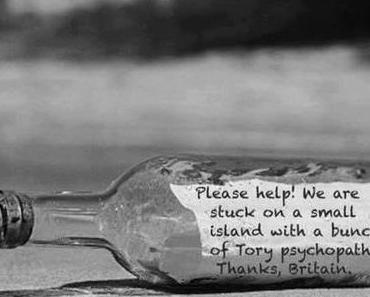 Please help! We are
stuck on a small
island with a bunc
of Tory psychopath
Thanks, Britain.